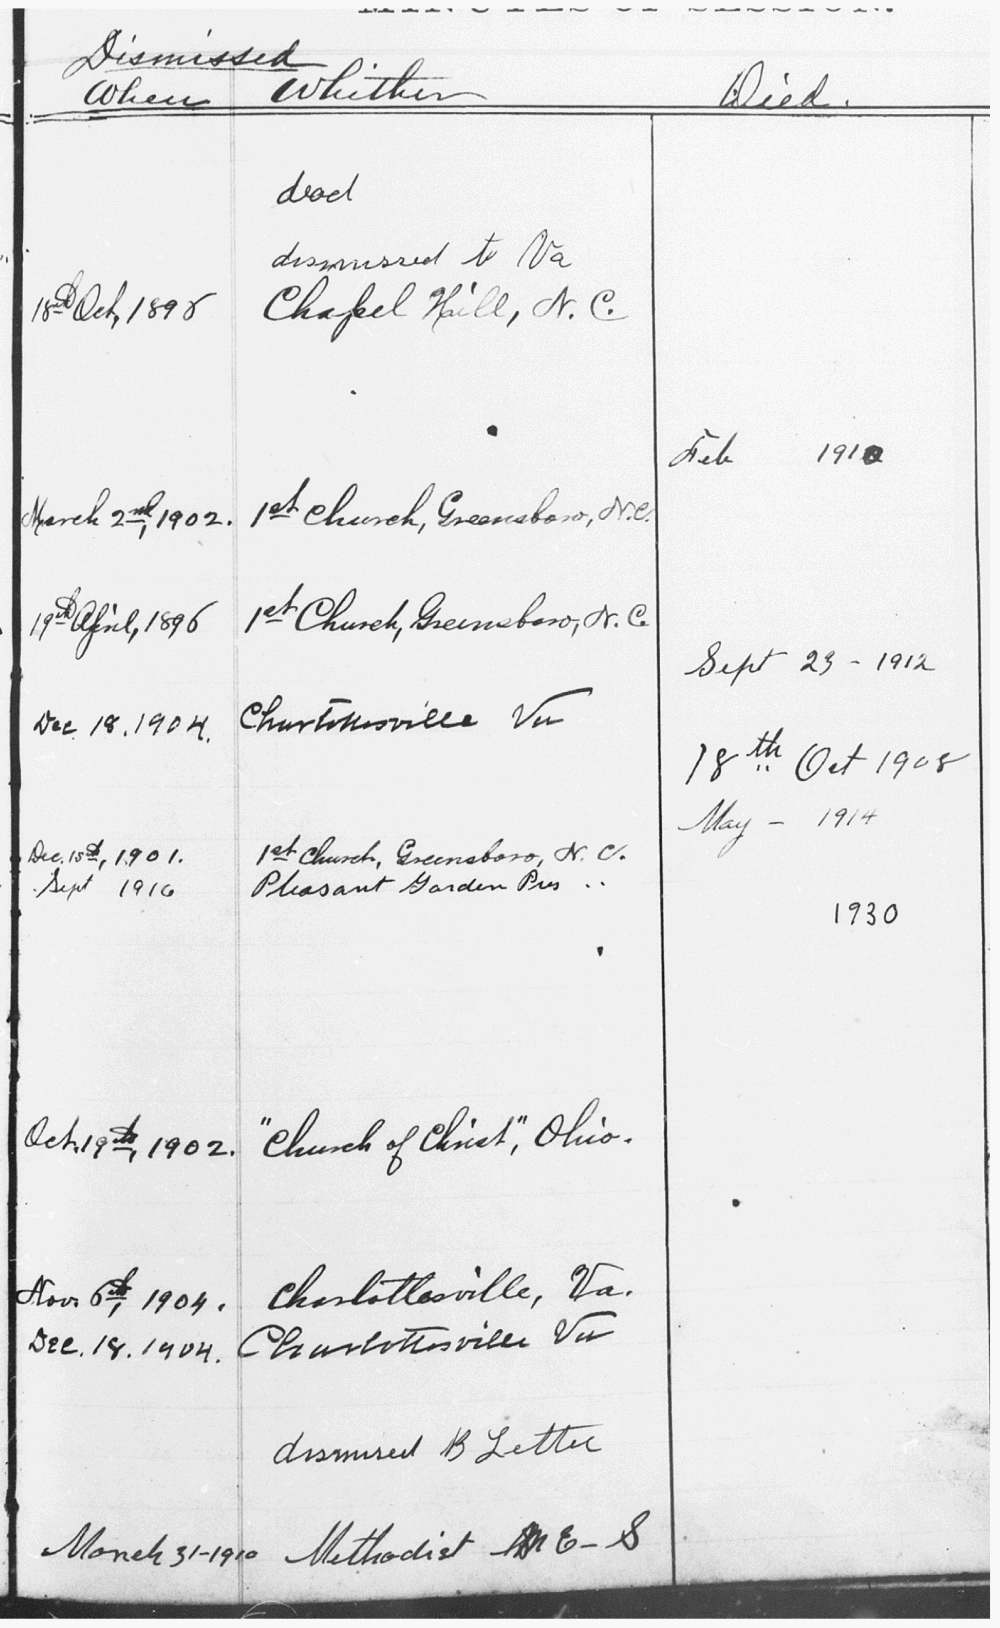 MINUTES OF SESSION.
Dismissed
When Whither Died.
dead
dismissed to Va
18th Oct, 1896 Chapel Hill, N. C.
Feb 1910
March 2nd, 1902. 1st Church, Greensboro, N.C.
19th April, 1896 1st Church, Greensboro, N. C.
Sept 23 - 1912
Dec. 18. 1904. Charlottesville Va
18th Oct 1908
May - 1914
Dec. 15th, 1901. 1st Church, Greensboro, N. C.
Sept 1916 Pleasant Garden Pres ..
1930
Oct. 19th, 1902. "Church of Christ", Ohio.
Nov. 6th, 1904. Charlottesville, Va.
Dec. 18. 1904. Charlottesville Va
dismissed B Letter
March 31-1910 Methodist M E - S